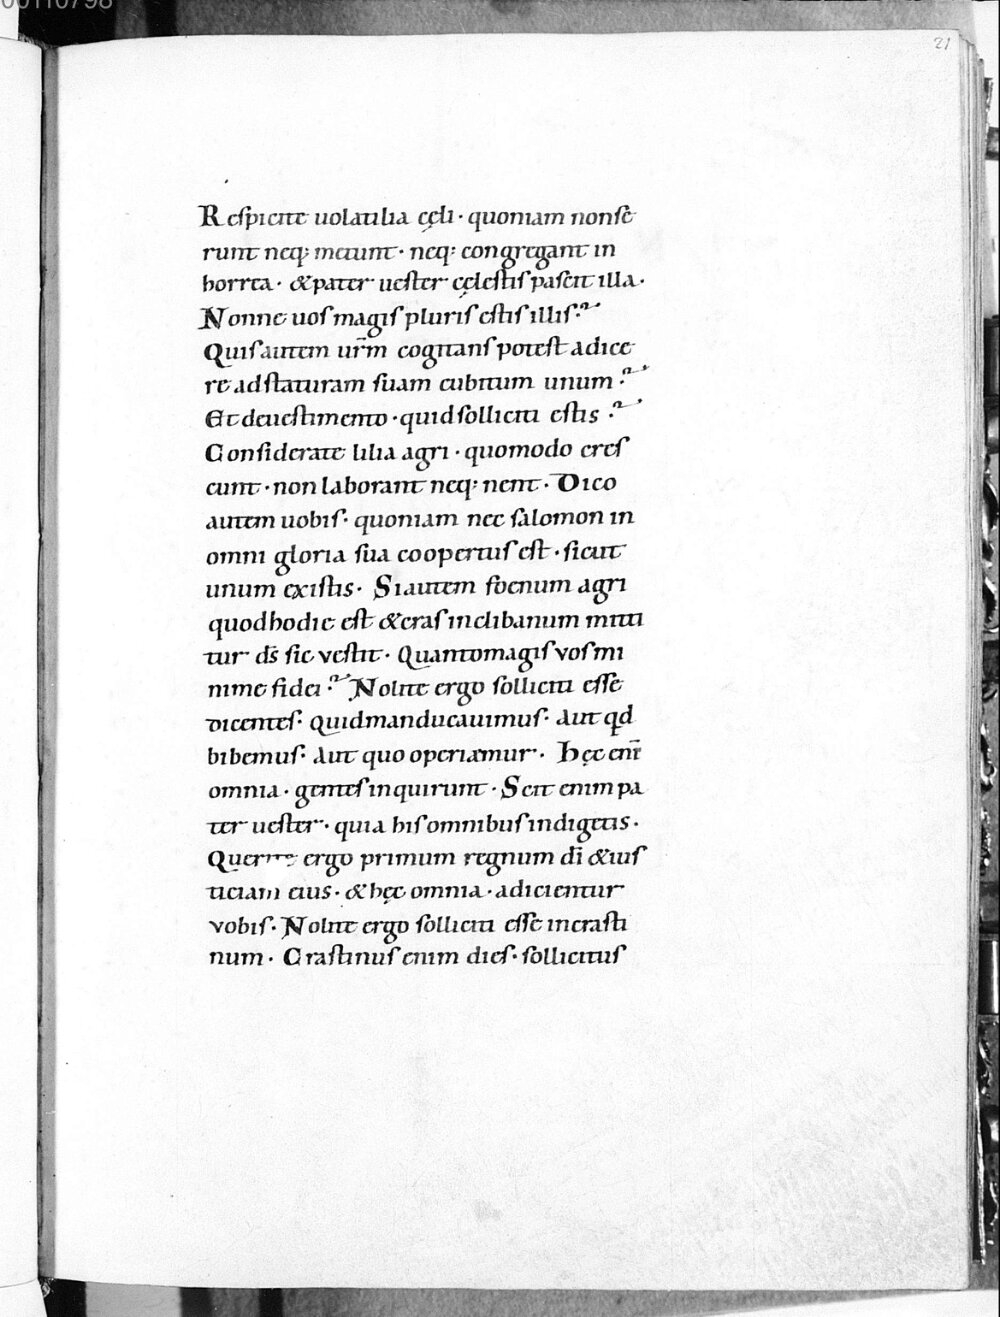 00110798
21
Respicite uolatilia cęli · quoniam nonse
runt neq; metunt · neq; congregant in
horrea · & pater uester cęlestis pascit illa ·
Nonne uos magis pluris estis illis ?
Quis autem ur̄m cogitans potest adice
re ad staturam suam cubitum unum ?
Et de uestimento · quid solliciti estis ?
Considerate lilia agri · quomodo cres
cunt · non laborant neq; nent · Dico
autem uobis · quoniam nec salomon in
omni gloria sua coopertus est · sicut
unum ex istis · Si autem foenum agri
quod hodie est & cras in clibanum mitti
tur ds̄ sic vestit · Quanto magis vos mi
nime fidei ? Nolite ergo solliciti esse
dicentes · Quid manducauimus · Aut qd
bibemus · Aut quo operiamur · Hęc eni̅
omnia · gentes inquirunt · Scit enim pa
ter uester · quia his omnibus indigetis ·
Querite ergo primum regnum dī & ius
ticiam eius · & hęc omnia · adicientur
vobis · Nolite ergo solliciti esse in crasti
num · Crastinus enim dies · sollicitus